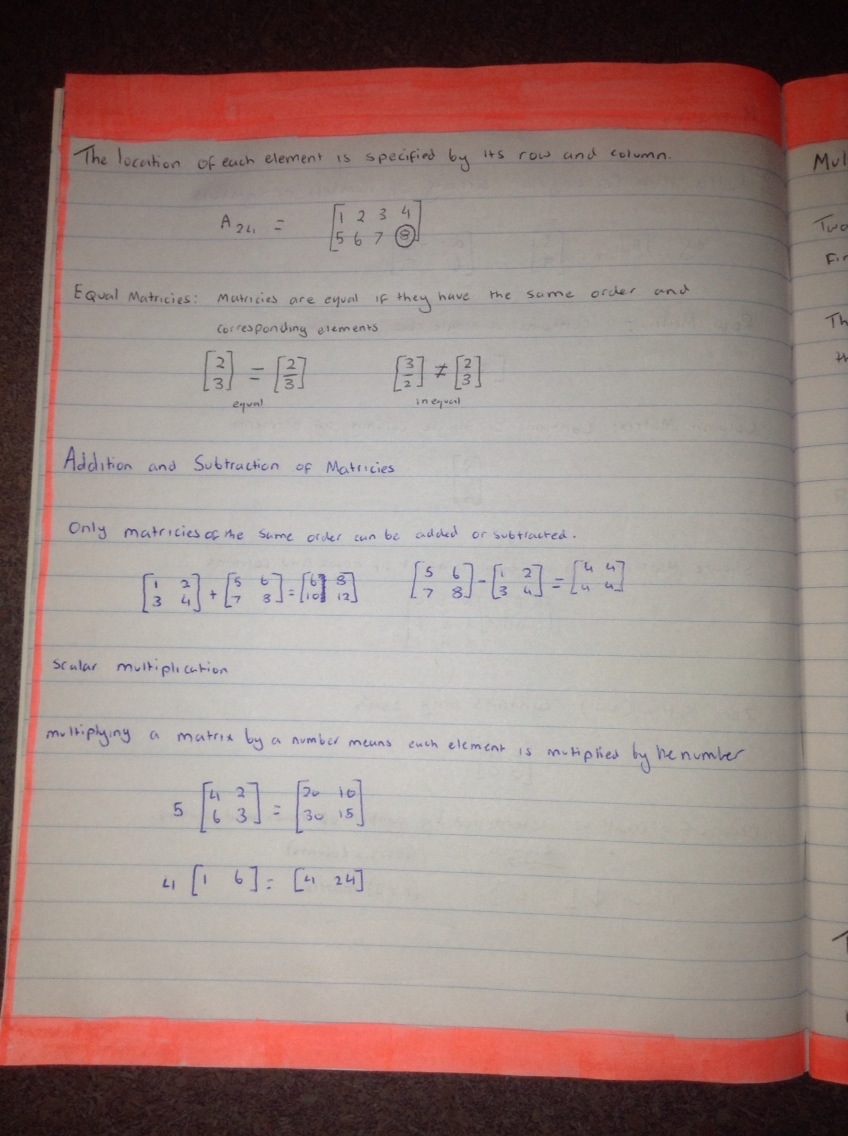 The location of each element is specified by its row and column.
A24 = [1 2 3 4
5 6 7 8]
Equal Matricies: Matricies are equal if they have the same order and
corresponding elements
[2 3] = [2 3] [3 2] ≠ [2 3]
equal inequal
Addition and Subtraction of Matricies
Only matricies of the same order can be added or subtracted.
[1 2 + [5 6 = [6 8 [5 6 - [1 2 = [4 4
3 4] 7 8] 10 12] 7 8] 3 4] 4 4]
Scalar multiplication
multiplying a matrix by a number means each element is mutiplied by he number
5 [4 2 = [20 10
6 3] 30 15]
4 [1 6] = [4 24]
Mul
Two
Fir
Th
th